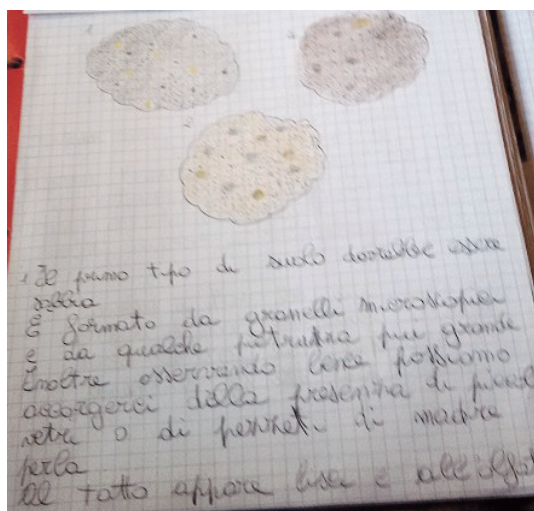 1
2
1 Il primo tipo di suolo dovrebbe essere
sabbia
È formato da granelli microscopici
e da qualche pietruzza più grande
Inoltre osservando bene possiamo
accorgerci della presenza di piccoli
vetri o di pezzetti di madre
perla
Al tatto appare lisa e all'olfat